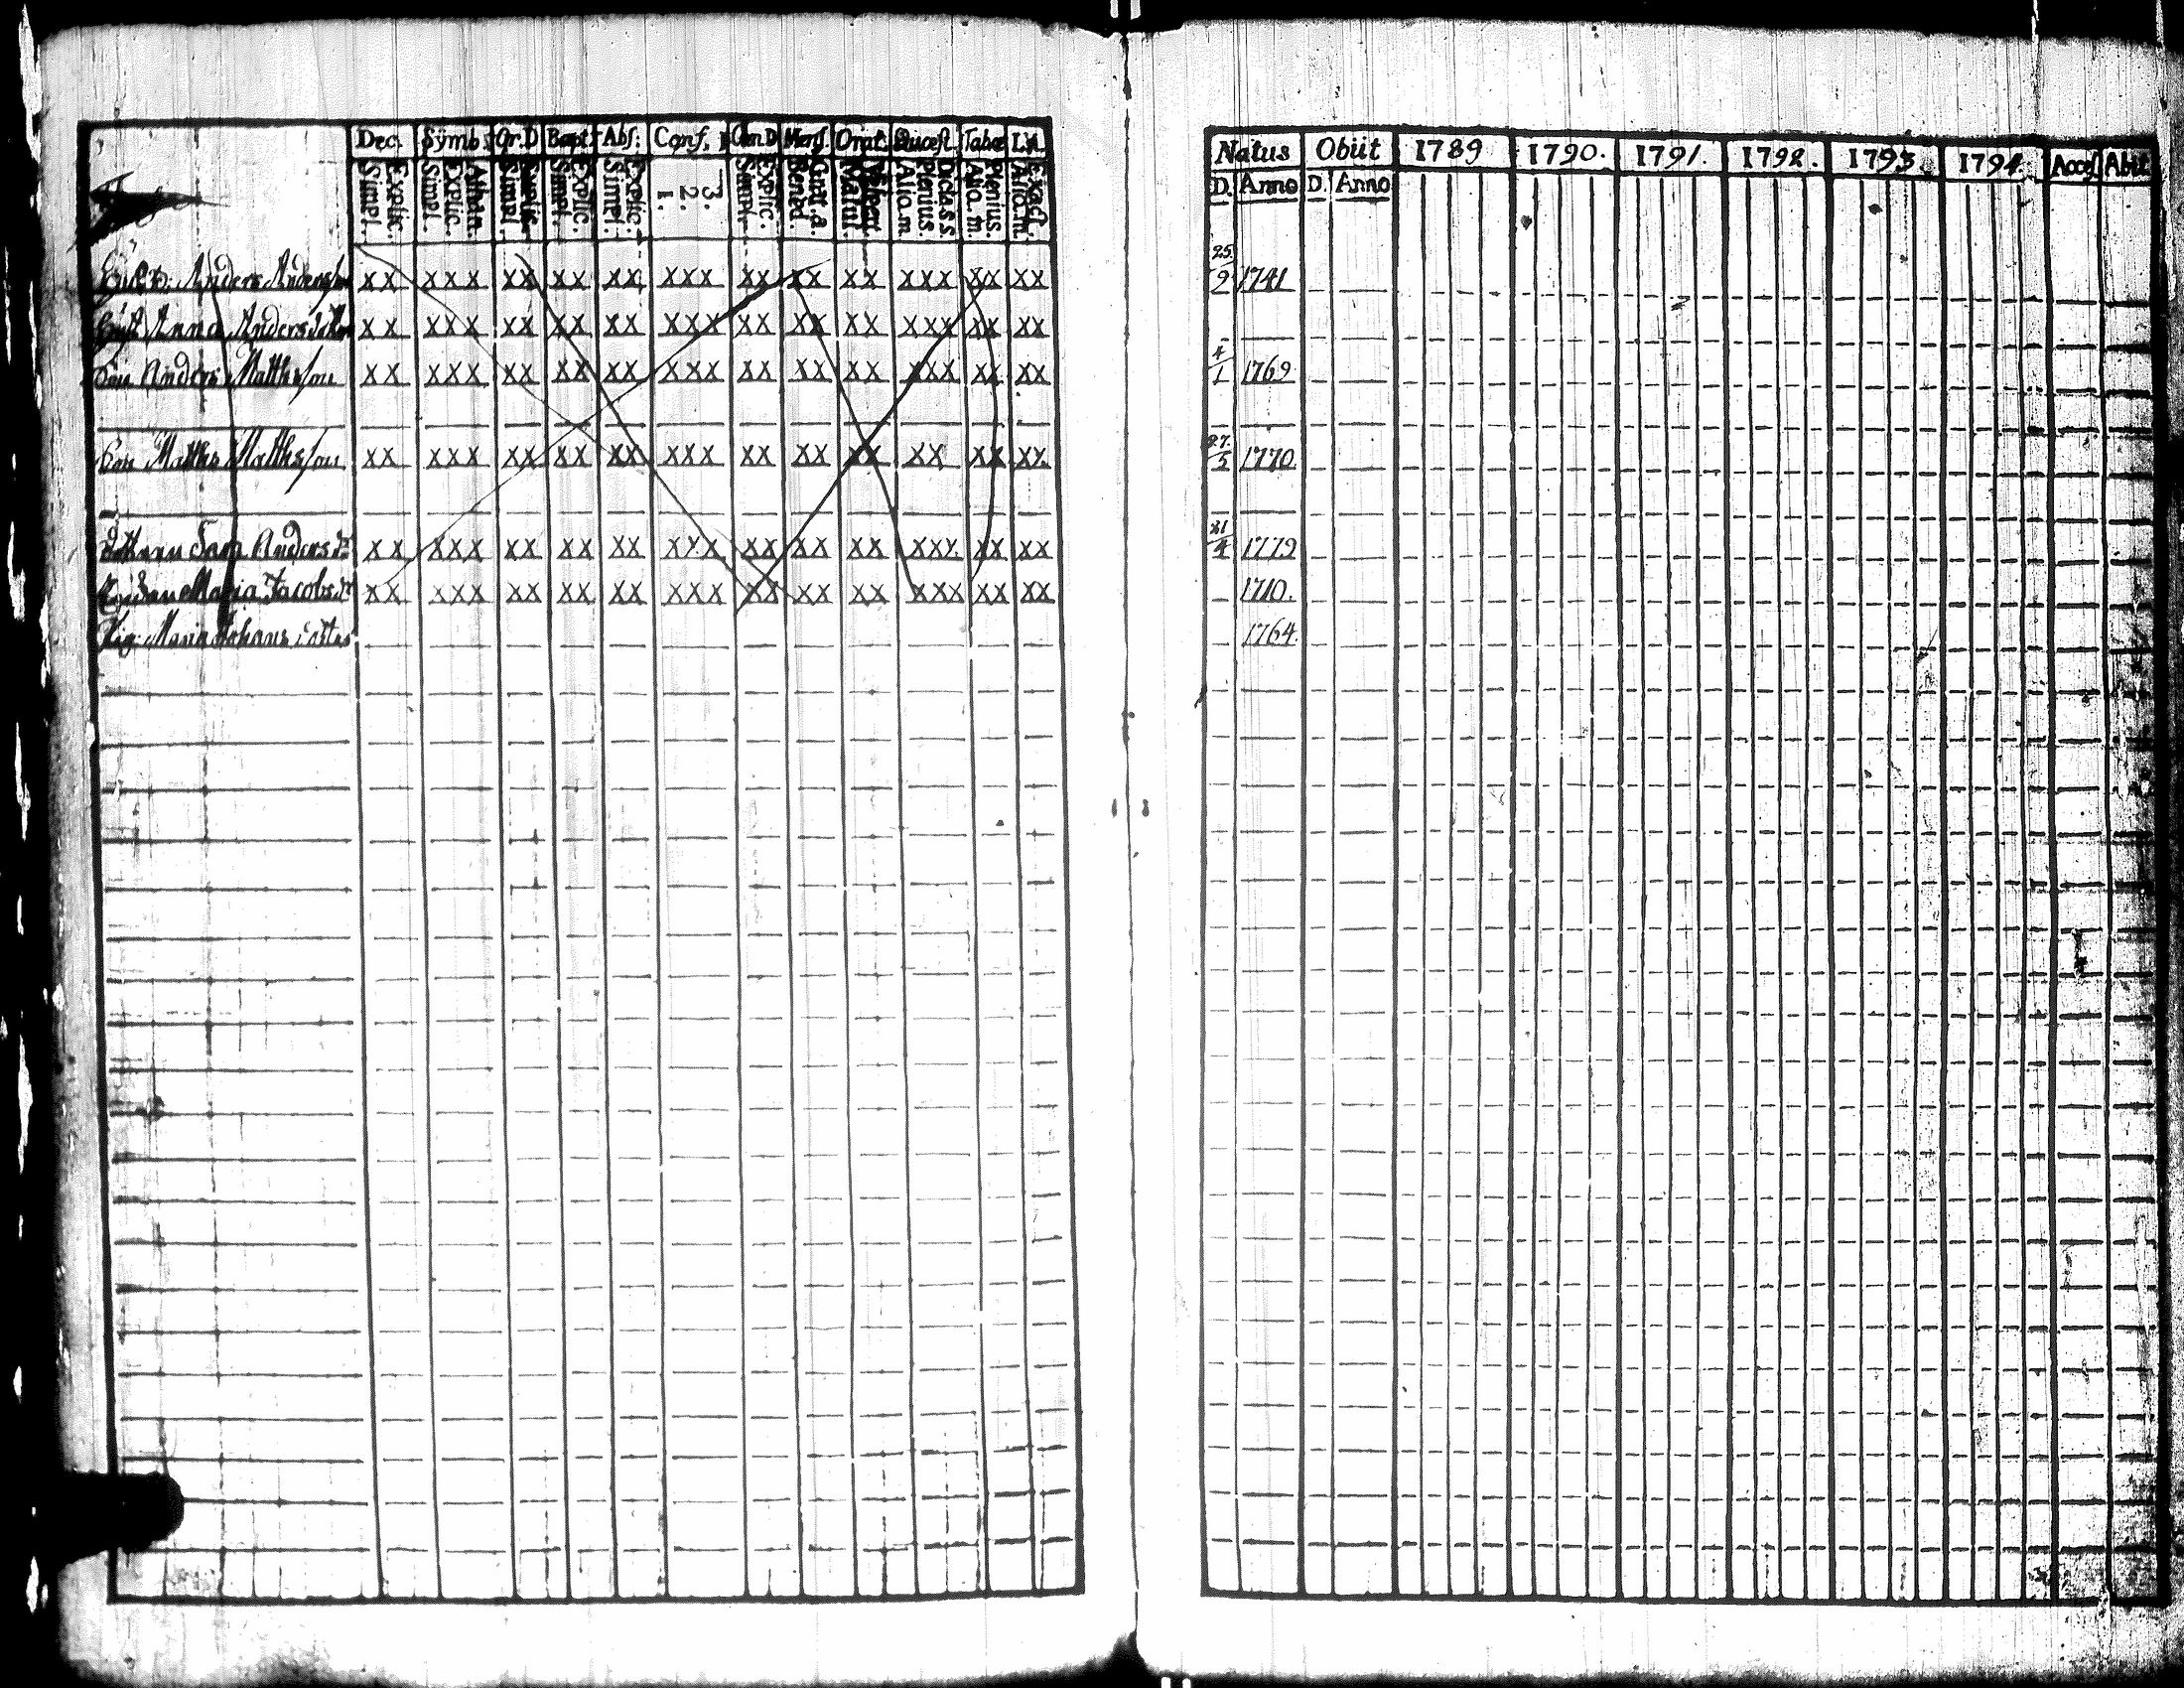 Dec. Symb. Or.D Bapt. Abs. Conf. Cœn.D Mens. Orat. Quæst. Tabæ L.
Simpl. Explic. Simpl. Explic. Athata. Simpl. Explic. Simpl. Explic. Simpl. Explic. 1. 2. 3. Simpl. Explic. Bened. Grat. a. Matut. Vesper. Alio. m. Plenius. Dicta. s. s. Alio. m. Plenius. Alio. m. Exact.
Anders Andersson xx xxx xx xx xx xxx xx xx xx xxx xx xx
Anna Andersdotter xx xxx xx xx xx xxx xx xx xx xxx xx xx
Son Anders Mattsson xx xxx xx xx xx xxx xx xx xx xxx xx xx
Son Matths Matthsson xx xxx xx xx xx xxx xx xx xx xx xx xx
Anders dr xx xxx xx xx xx xxx xx xx xx xxx xx xx
Maria Jacobs dr xx xxx xx xx xx xxx xx xx xx xxx xx xx
Pig. Maria Johans dotter
Natus Obiit 1789 1790. 1791. 1792. 1793. 1794. Acces. Abit.
D. Anno D. Anno
25/9 1741
4/1 1769
27/5 1770
1779
1710.
1764.